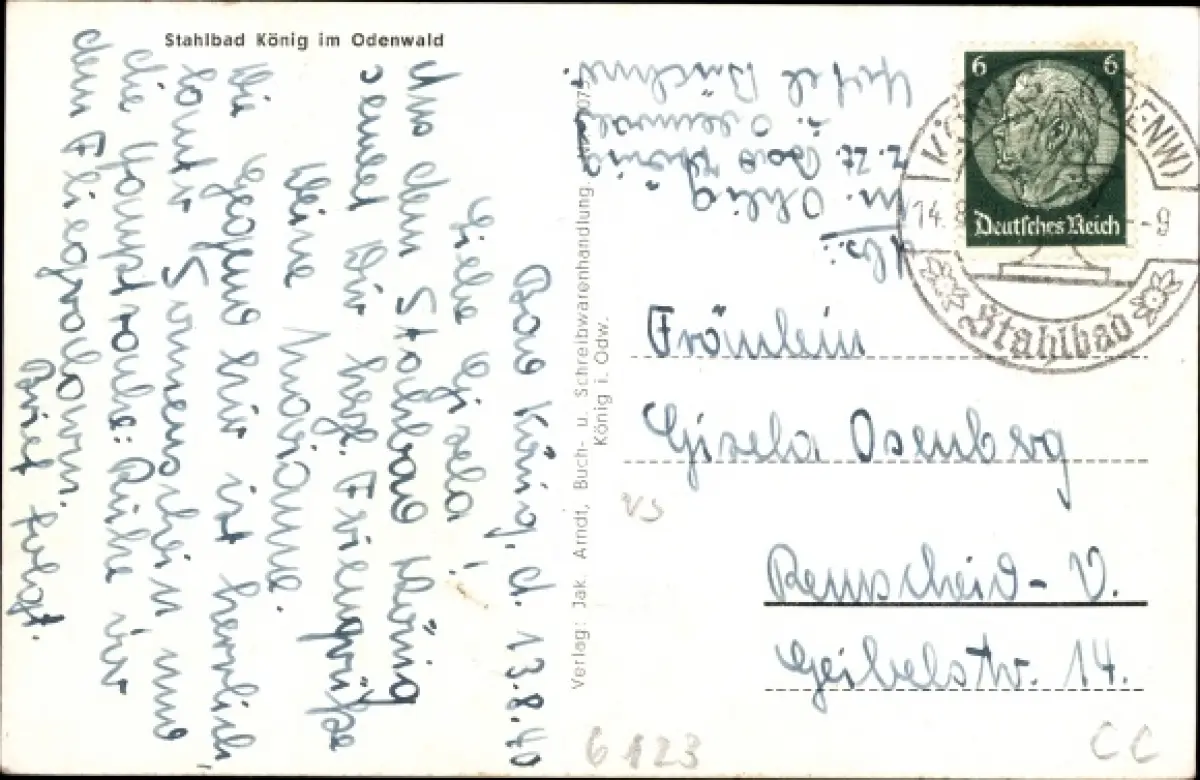 Stahlbad König im Odenwald
Bad König, d. 13.8.40
Liebe Gisela!
Aus dem Stahlbad König
sendet Dir herzl. Feriengrüße
Deine Marianne.
Die Gegend hier ist herrlich,
lauter Sonnenschein und
die Hauptsache: Ruhe vor
dem Fliegeralarm.
Brief folgt.
Verlag: Jak. Arndt, Buch- u. Schreibwarenhandlung,
König i. Odw.
Abs.:
M. Ohlig
z. Zt. Bad König
i. Odenwald
Hotel Büchner
6 6
Deutsches Reich
KÖNIG (ODENW)
14.8. -9
Stahlbad
Fräulein
Gisela Osenberg
Remscheid-V.
Geibelstr. 14.
VS
6123
CC